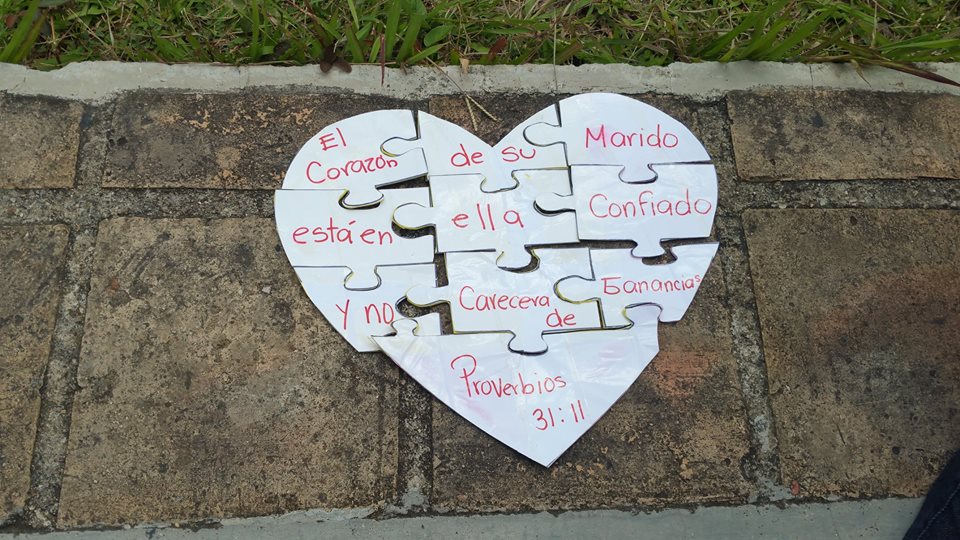 El
Corazón
de su
Marido
está en
ella
Confiado
Y no
Carecera
de
Ganancias
Proverbios
31:11